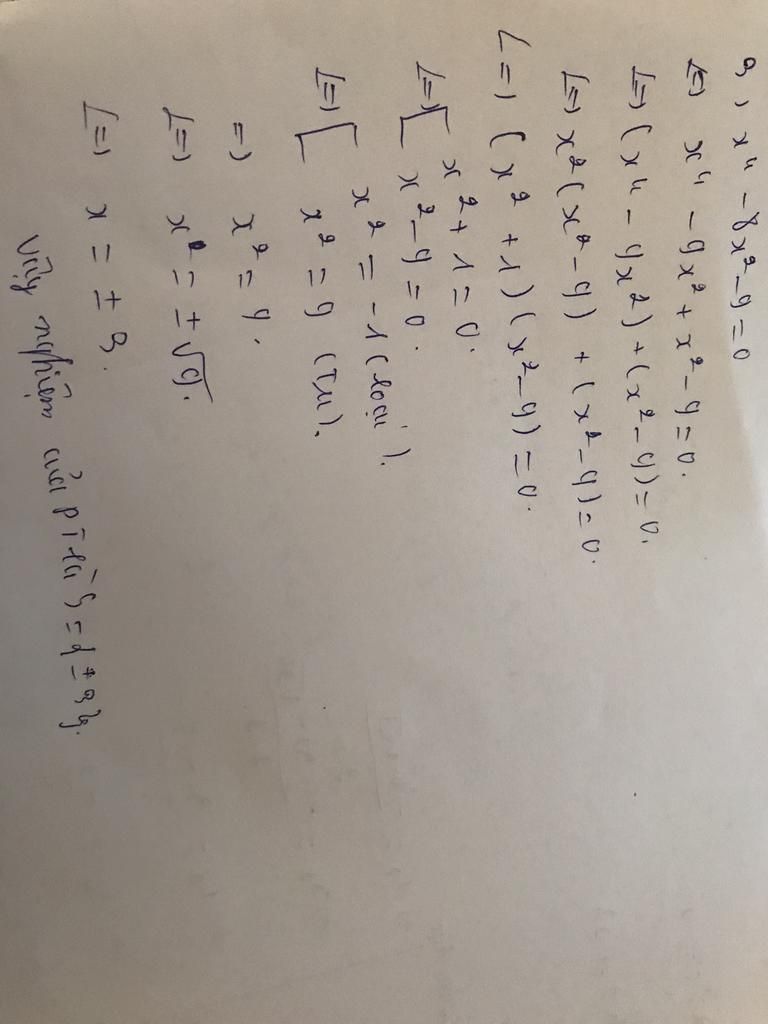 a, x⁴ - 8x² - 9 = 0
<=> x⁴ - 9x² + x² - 9 = 0.
<=> (x⁴ - 9x²) + (x² - 9) = 0.
<=> x²(x² - 9) + (x² - 9) = 0.
<=> (x² + 1)(x² - 9) = 0.
<=> [ x² + 1 = 0.
x² - 9 = 0.
<=> [ x² = -1 (loại).
x² = 9 (TM).
=> x² = 9.
<=> x² = ±√9.
<=> x = ±3.
Vậy nghiệm của PT là S = {±3}.